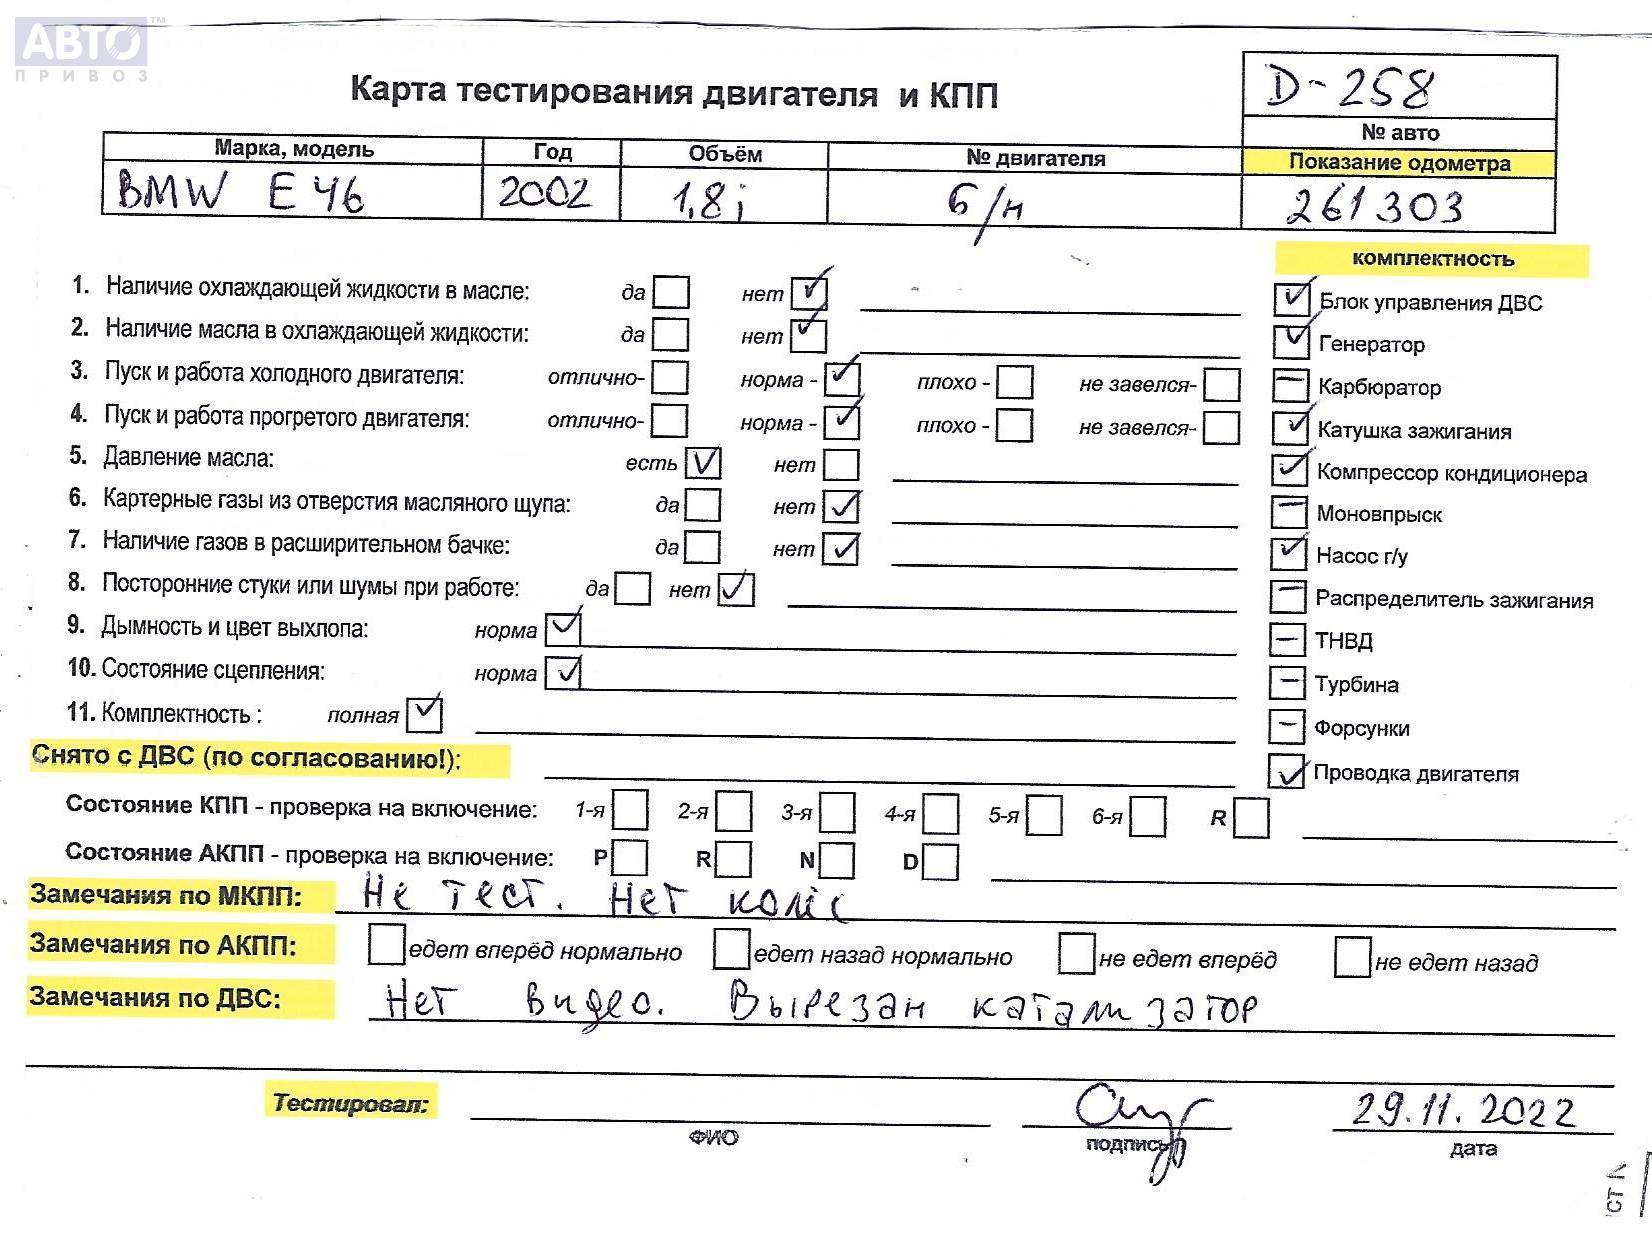 АВТО™
ПРИВОЗ
Карта тестирования двигателя и КПП
D-258
№ авто
Марка, модель Год Объём № двигателя Показание одометра
BMW E 46 2002 1,8i б/н 261303
комплектность
1. Наличие охлаждающей жидкости в масле: да нет ✓
✓ Блок управления ДВС
2. Наличие масла в охлаждающей жидкости: да нет ✓
✓ Генератор
3. Пуск и работа холодного двигателя: отлично- норма - ✓ плохо - не завелся-
— Карбюратор
4. Пуск и работа прогретого двигателя: отлично- норма - ✓ плохо - не завелся-
✓ Катушка зажигания
5. Давление масла: есть ✓ нет
✓ Компрессор кондиционера
6. Картерные газы из отверстия масляного щупа: да нет ✓
— Моновпрыск
7. Наличие газов в расширительном бачке: да нет ✓
✓ Насос г/у
8. Посторонние стуки или шумы при работе: да нет ✓
— Распределитель зажигания
9. Дымность и цвет выхлопа: норма ✓
— ТНВД
10. Состояние сцепления: норма ✓
— Турбина
11. Комплектность : полная ✓
— Форсунки
Снято с ДВС (по согласованию!):
✓ Проводка двигателя
Состояние КПП - проверка на включение: 1-я 2-я 3-я 4-я 5-я 6-я R
Состояние АКПП - проверка на включение: P R N D
Замечания по МКПП: Не тест. Нет колёс
Замечания по АКПП: едет вперёд нормально едет назад нормально не едет вперёд не едет назад
Замечания по ДВС: Нет видео. Вырезан катализатор
Тестировал: 29.11.2022
ФИО подпись дата